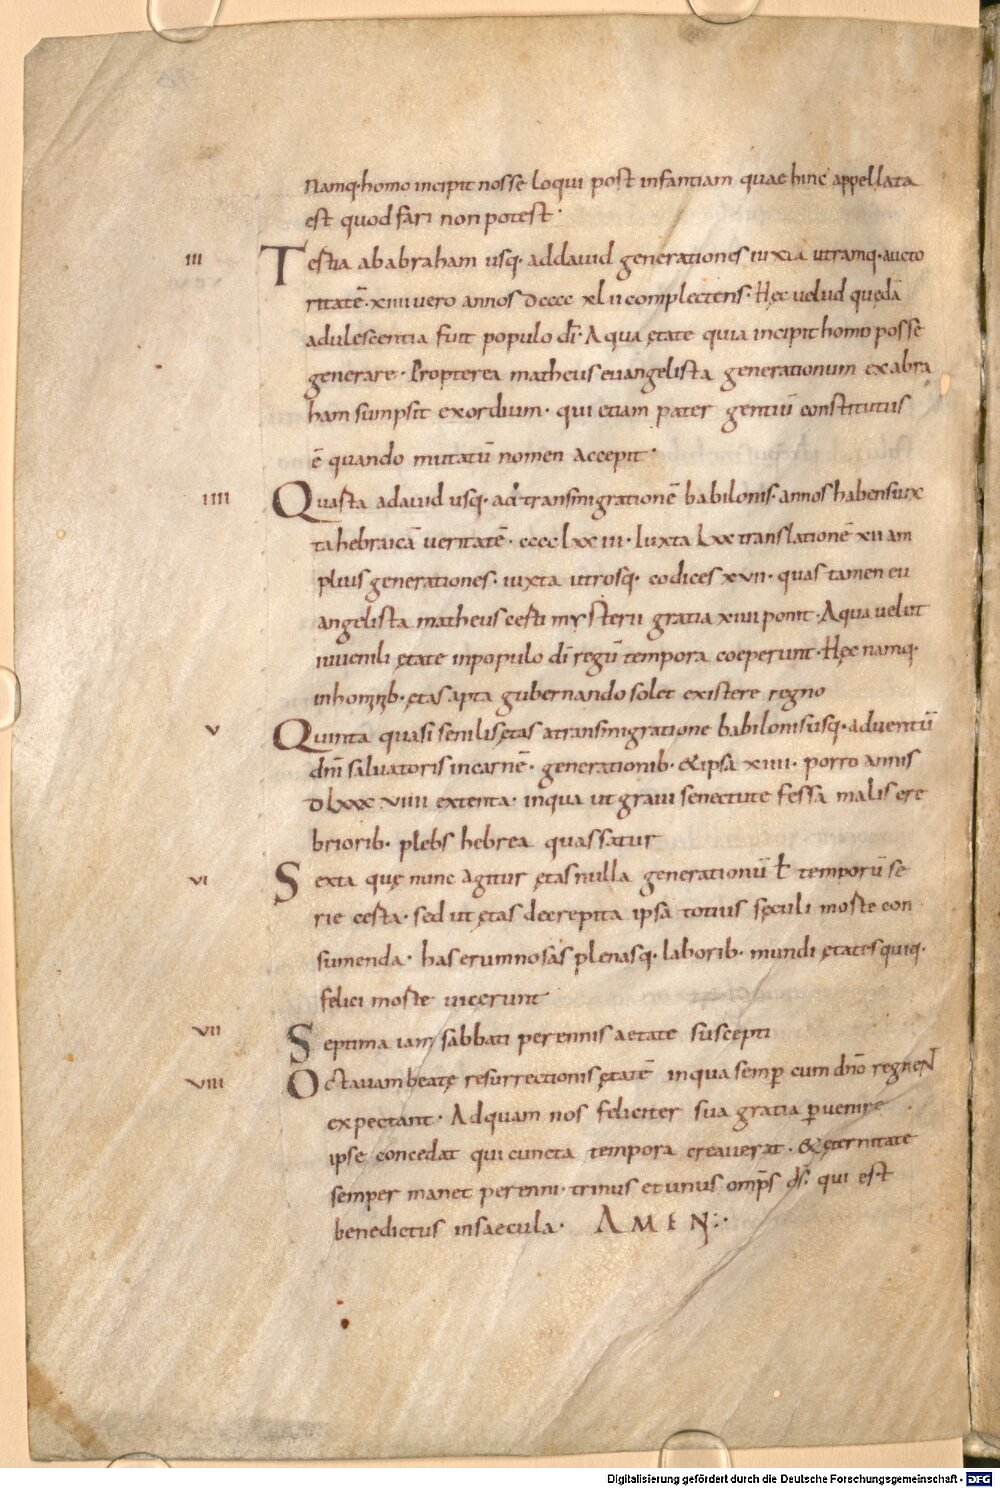 namq·homo incipit nosse loqui post infantiam quae hinc appellata
est quod fari non potest·
III Testia ab abraham usq· ad dauid generationes iuxta utramq·aucto
ritatē·xiiii vero annos dcccc xl ii complectens·Hęc uelud quędā
adulescentia fuit populo dī·A qua ętate quia incipit homo posse
generare·Propterea matheus euangelista generationum ex abra
ham sumpsit exordium· qui etiam pater gentiū constitutus
ē quando mutatū nomen accepit·
IIII Quasta a dauid usq· ad transmigrationē babilonis·annos habens iux
ta hebraicā ueritatē·cccc lxx iii·Iuxta Lxx translationē xii am
plius generationes·iuxta utrosq· codices xvii·quas tamen eu
angelista matheus certi mysterii gratia xiiii ponit·A qua uelut
iuuenili ętate in populo dī regū tempora coeperunt·Hęc namq·
in hominib·ętas apta gubernando solet existere regno
V Quinta quasi senilis ętas a transmigratione babilonis usq·aduentū
dn̄i saluatoris in carnē·generationib·& ipsa xiiii·porro annis
dlxxx viiii extenta·in qua ut graui senectute fessa malis cre
briorib·plebs hebrea quassatur
VI Sexta quę nunc agitur ętas nulla generationū ł temporū se
rie certa·sed ut ętas decrepita ipsa totius sęculi morte con
sumenda·has erumnosas plenasq·laborib·mundi ętates quiq·
felici morte uicerunt
VII Septima iam sabbati perennis aetate suscepti
VIII Octauam beatę resurrectionis ętatē in qua semp̄ cum dn̄o regnent
expectant·Ad quam nos feliciter sua gratia puenire
ipse concedat qui cuncta tempora creauerat·& ęternitate
semper manet perenni·trinus et unus omps̄ ds̄·qui est
benedictus in saecula· AMEN:·
Digitalisierung gefördert durch die Deutsche Forschungsgemeinschaft - DFG